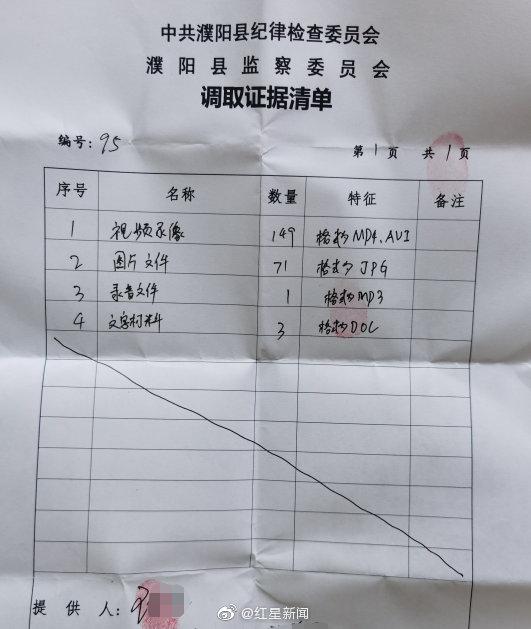 中共濮阳县纪律检查委员会
濮阳县监察委员会
调取证据清单
编号：95 第1页 共1页
序号 名称 数量 特征 备注
1 视频录像 149 格式为MP4、AVI
2 图片文件 71 格式为JPG
3 录音文件 1 格式为MP3
4 文字材料 3 格式为DOC
提供人：
@红星新闻